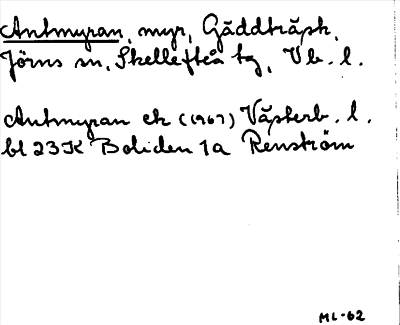 Antmyran, myr, Gäddträsk,
Jörns sn, Skellefteå tg, Vb. l.
Antmyran ek (1967) Västerb. l.
bl 23K Boliden 1a Renström
ML-62